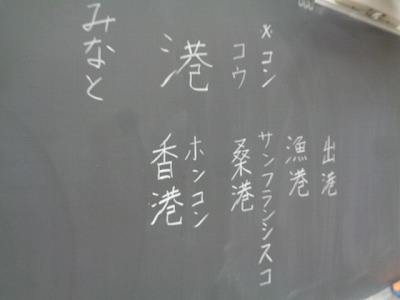 ×コン
コウ
港
みなと
出港
漁港
サンフランシスコ
桑港
ホンコン
香港